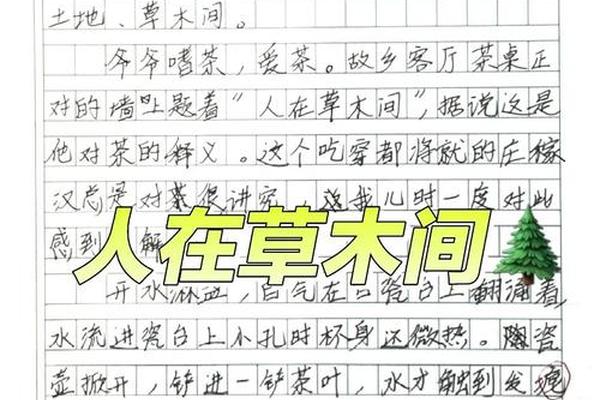 土地、草木间。
爷爷嗜茶，爱茶。故乡客厅茶桌正
对的墙上题着“人在草木间”，据说这是
他对茶的释义。这个吃穿都将就的庄稼
汉总是对茶很讲究，这我儿时一度对此
感到 解
人在草木间
开水淋 ，白气在 瓷台上翻涌着
水流进瓷台上小孔时杯身还微热。陶瓷
壶掀开，铲进一铲茶叶，水才触到发